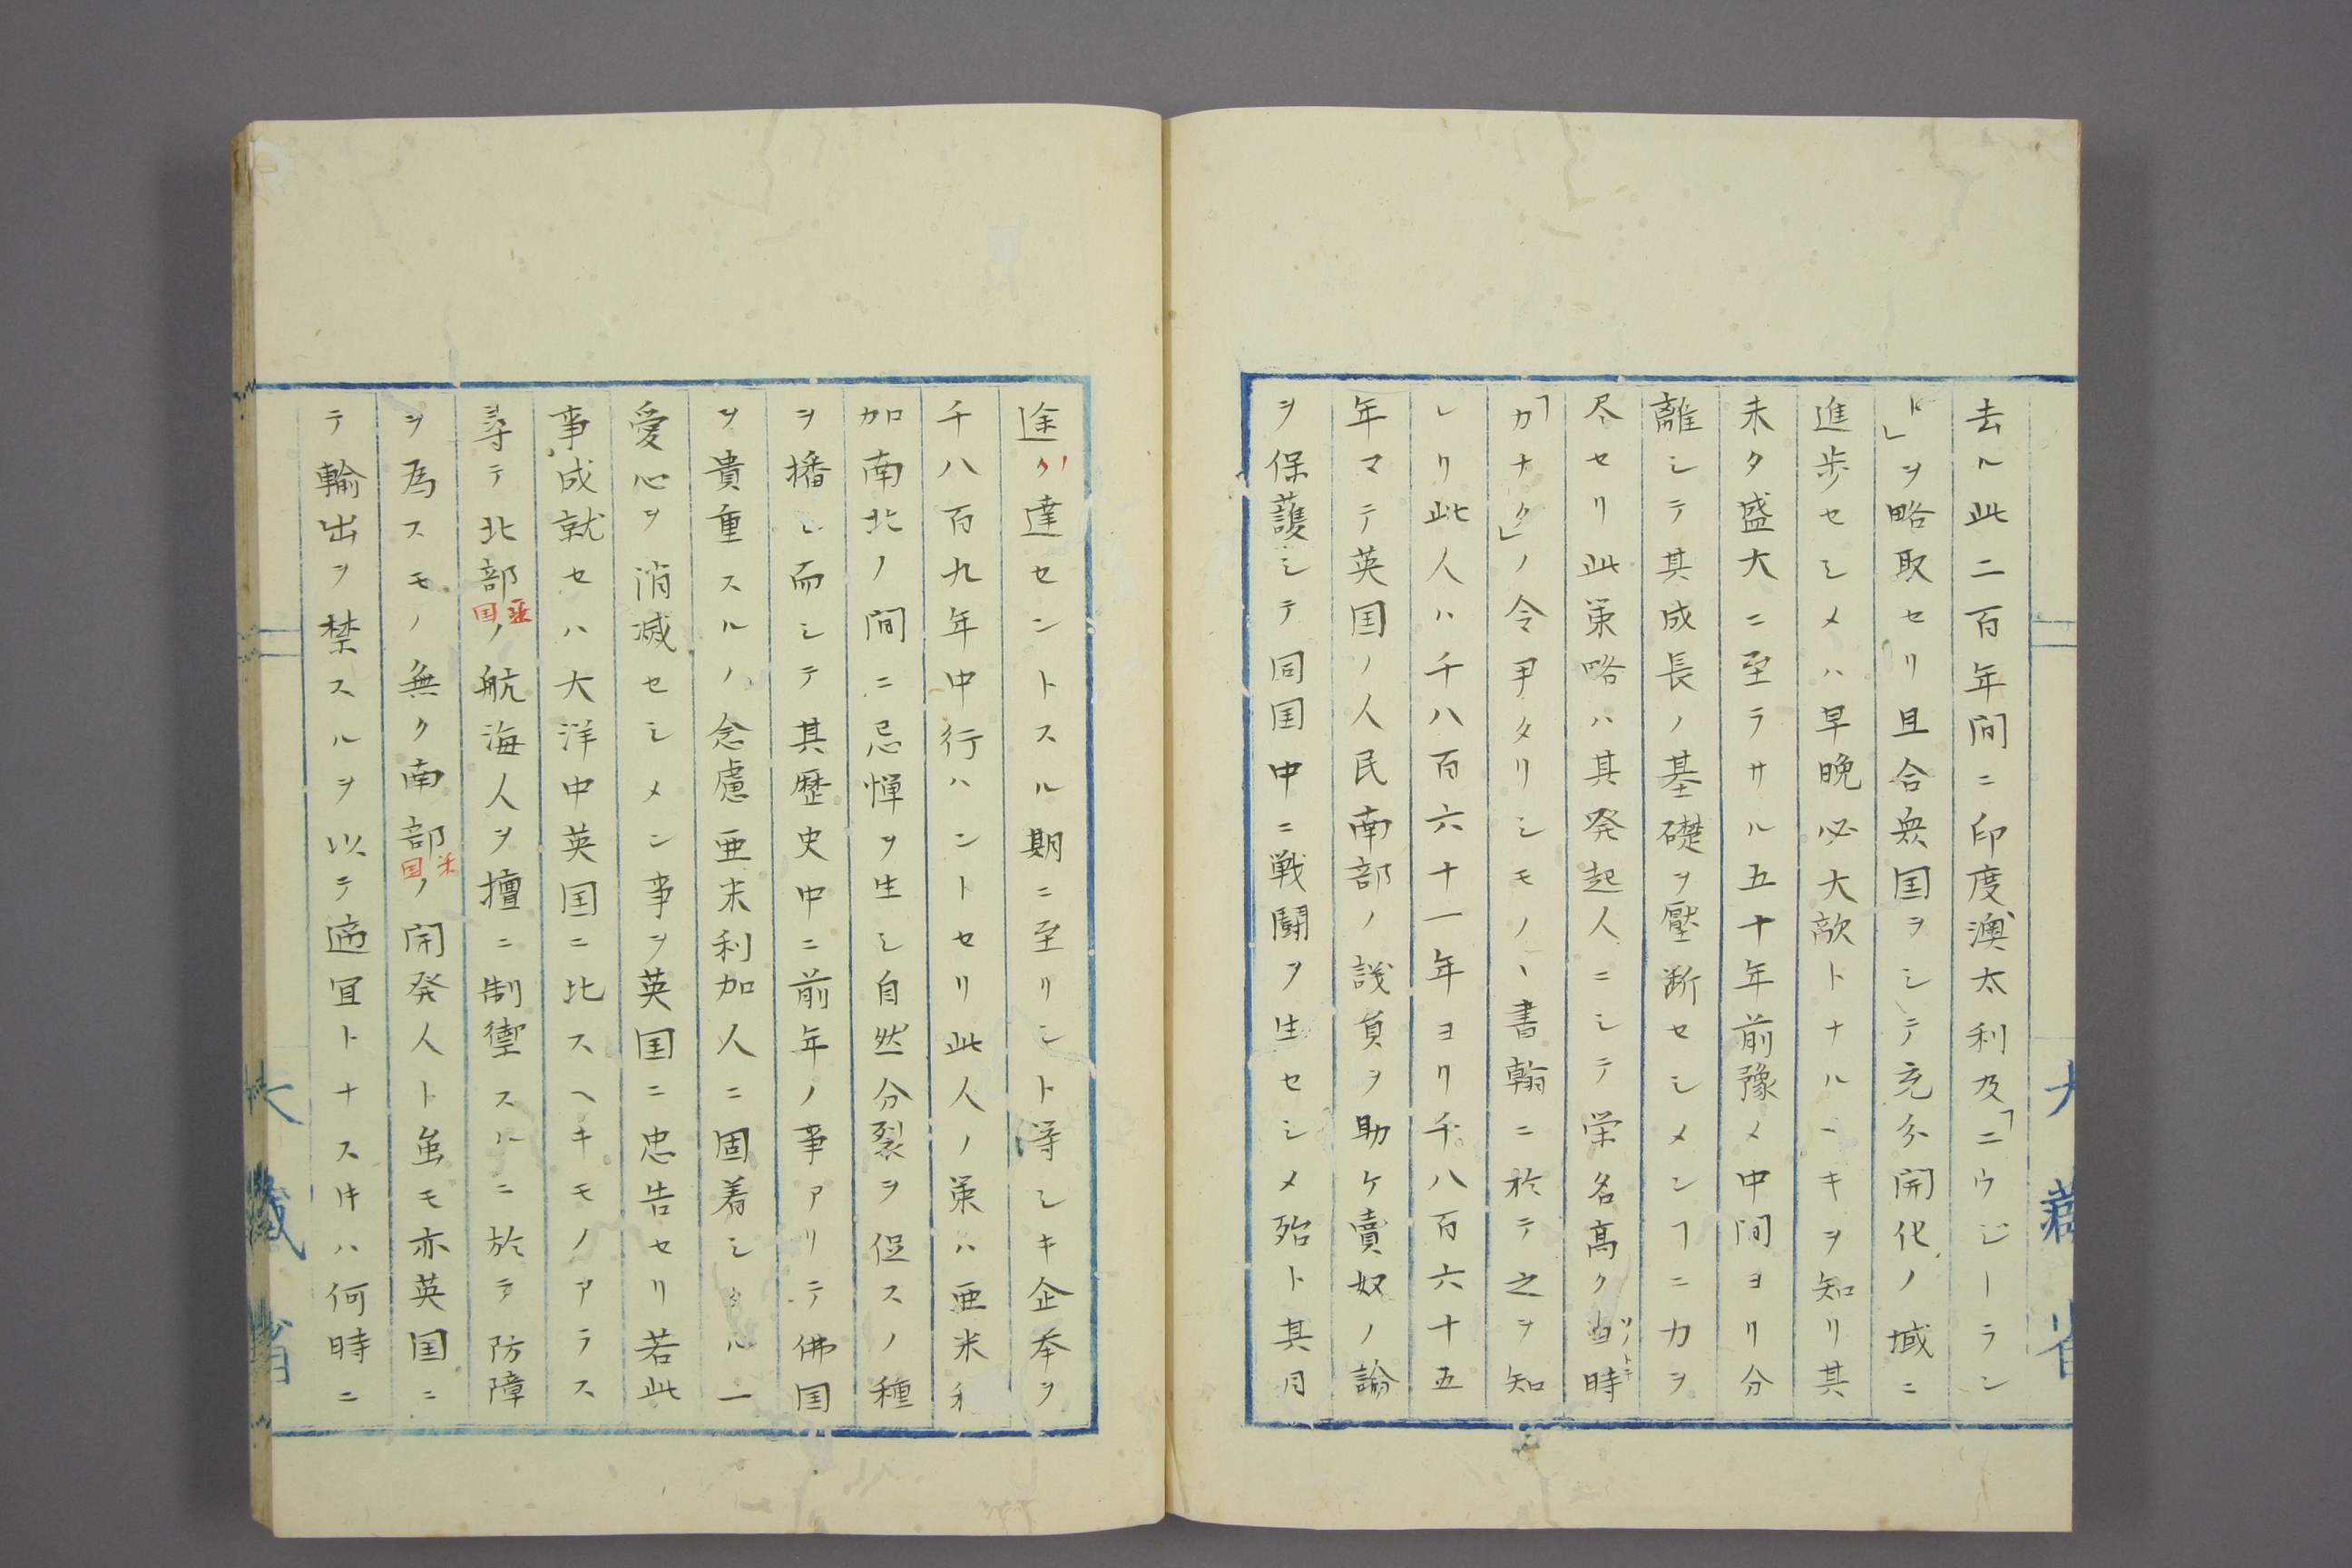 去ル此二百年間ニ印度澳太利及「ニウジーラン
ド」ヲ略取セリ且合衆国ヲシテ充分開化ノ域ニ
進歩セシメハ早晩必大敵トナルヘキヲ知リ其
未タ盛大ニ至ラサル五十年前豫メ中間ヨリ分
離シテ其成長ノ基礎ヲ壓断セシメンヿニ力ヲ
尽セリ此策略ハ其発起人ニシテ栄名高ク当時
「カナタ」ノ令尹タリシモノヽ書翰ニ於テ之ヲ知
レリ此人ハ千八百六十一年ヨリ千八百六十五
年マテ英国ノ人民南部ノ議員ヲ助ケ賣奴ノ論
ヲ保護シテ同国中ニ戦闘ヲ生セシメ殆ト其目
途ヲ達セントスル期ニ至リシト等シキ企奉ヲ
千八百九年中行ハントセリ此人ノ策ハ亜米利
加南北ノ間ニ忌憚ヲ生シ自然分裂ヲ促スノ種
ヲ播シ而シテ其歴史中ニ前年ノ事アリテ佛国
ヲ貴重スルノ念慮亜米利加人ニ固着シタル一
愛心ヲ消滅セシメン事ヲ英国ニ忠告セリ若此
事成就セハ大洋中英国ニ比スヘキモノアラス
尋テ北部ノ航海人ヲ擅ニ制禦スルニ於テ防障
亜国
ヲ為スモノ無ク南部ノ開発人ト虽モ亦英国ニ
米国
テ輸出ヲ禁スルヲ以テ適宜トナス中ハ何時ニ
大藏省
大藏省